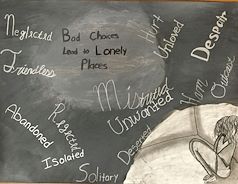 Neglected
Friendless
Bad Choices
Lead to Lonely
Places.
Hurt
Unloved
Despair
Outcast
Harm
Mistrust
Unwanted
Abandoned
Rejected
Isolated
Solitary
Deserted